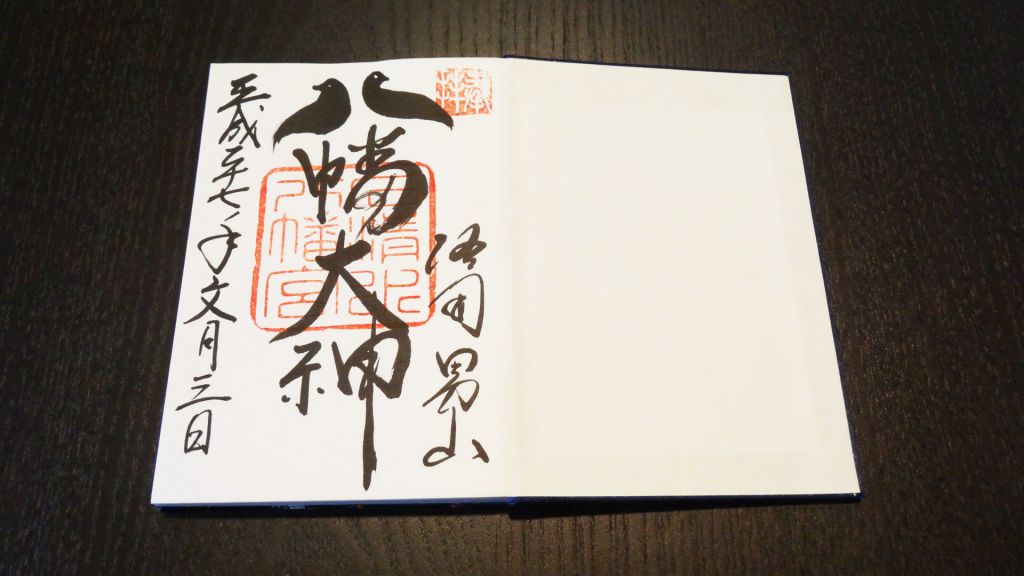 奉拝
洛南 男山
八幡大神
石清水
八幡宮
平成二十七年文月三日